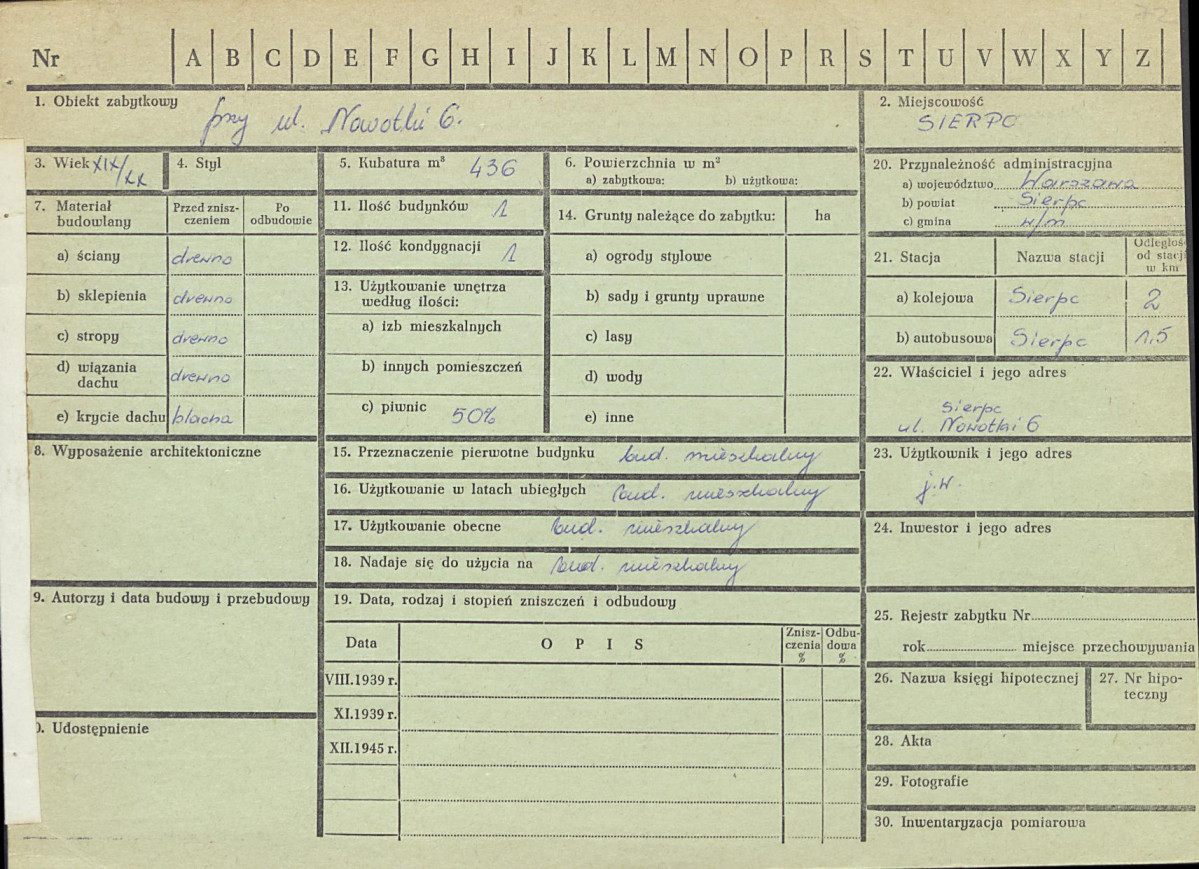 72
Nr A B C D E F G H I J K L M N O P R S T U V W X Y Z
1. Obiekt zabytkowy przy ul. Nowotki 6.
2. Miejscowość
SIERPC
3. Wiek XIX/XX
4. Styl
5. Kubatura m³ 436
6. Powierzchnia w m²
a) zabytkowa: b) użytkowa:
7. Materiał budowlany
Przed zniszczeniem
Po odbudowie
a) ściany drewno
b) sklepienia drewno
c) stropy drewno
d) wiązania dachu drewno
e) krycie dachu blacha
8. Wyposażenie architektoniczne
9. Autorzy i data budowy i przebudowy
). Udostępnienie
11. Ilość budynków 1
12. Ilość kondygnacji 1
13. Użytkowanie wnętrza
według ilości:
a) izb mieszkalnych
b) innych pomieszczeń
c) piwnic 50%
14. Grunty należące do zabytku: ha
a) ogrody stylowe
b) sady i grunty uprawne
c) lasy
d) wody
e) inne
15. Przeznaczenie pierwotne budynku bud. mieszkalny
16. Użytkowanie w latach ubiegłych bud. mieszkalny
17. Użytkowanie obecne bud. mieszkalny
18. Nadaje się do użycia na bud. mieszkalny
19. Data, rodzaj i stopień zniszczeń i odbudowy
Data OPIS Zniszczenia % Odbudowa %
VIII.1939 r.
XI.1939 r.
XII.1945 r.
20. Przynależność administracyjna
a) województwo Warszawa
b) powiat Sierpc
c) gmina w/m
21. Stacja Nazwa stacji Odległoś od stacji w km
a) kolejowa Sierpc 2
b) autobusowa Sierpc 1,5
22. Właściciel i jego adres
Sierpc
ul. Nowotki 6
23. Użytkownik i jego adres
j.w.
24. Inwestor i jego adres
25. Rejestr zabytku Nr
rok miejsce przechowywania
26. Nazwa księgi hipotecznej
27. Nr hipoteczny
28. Akta
29. Fotografie
30. Inwentaryzacja pomiarowa